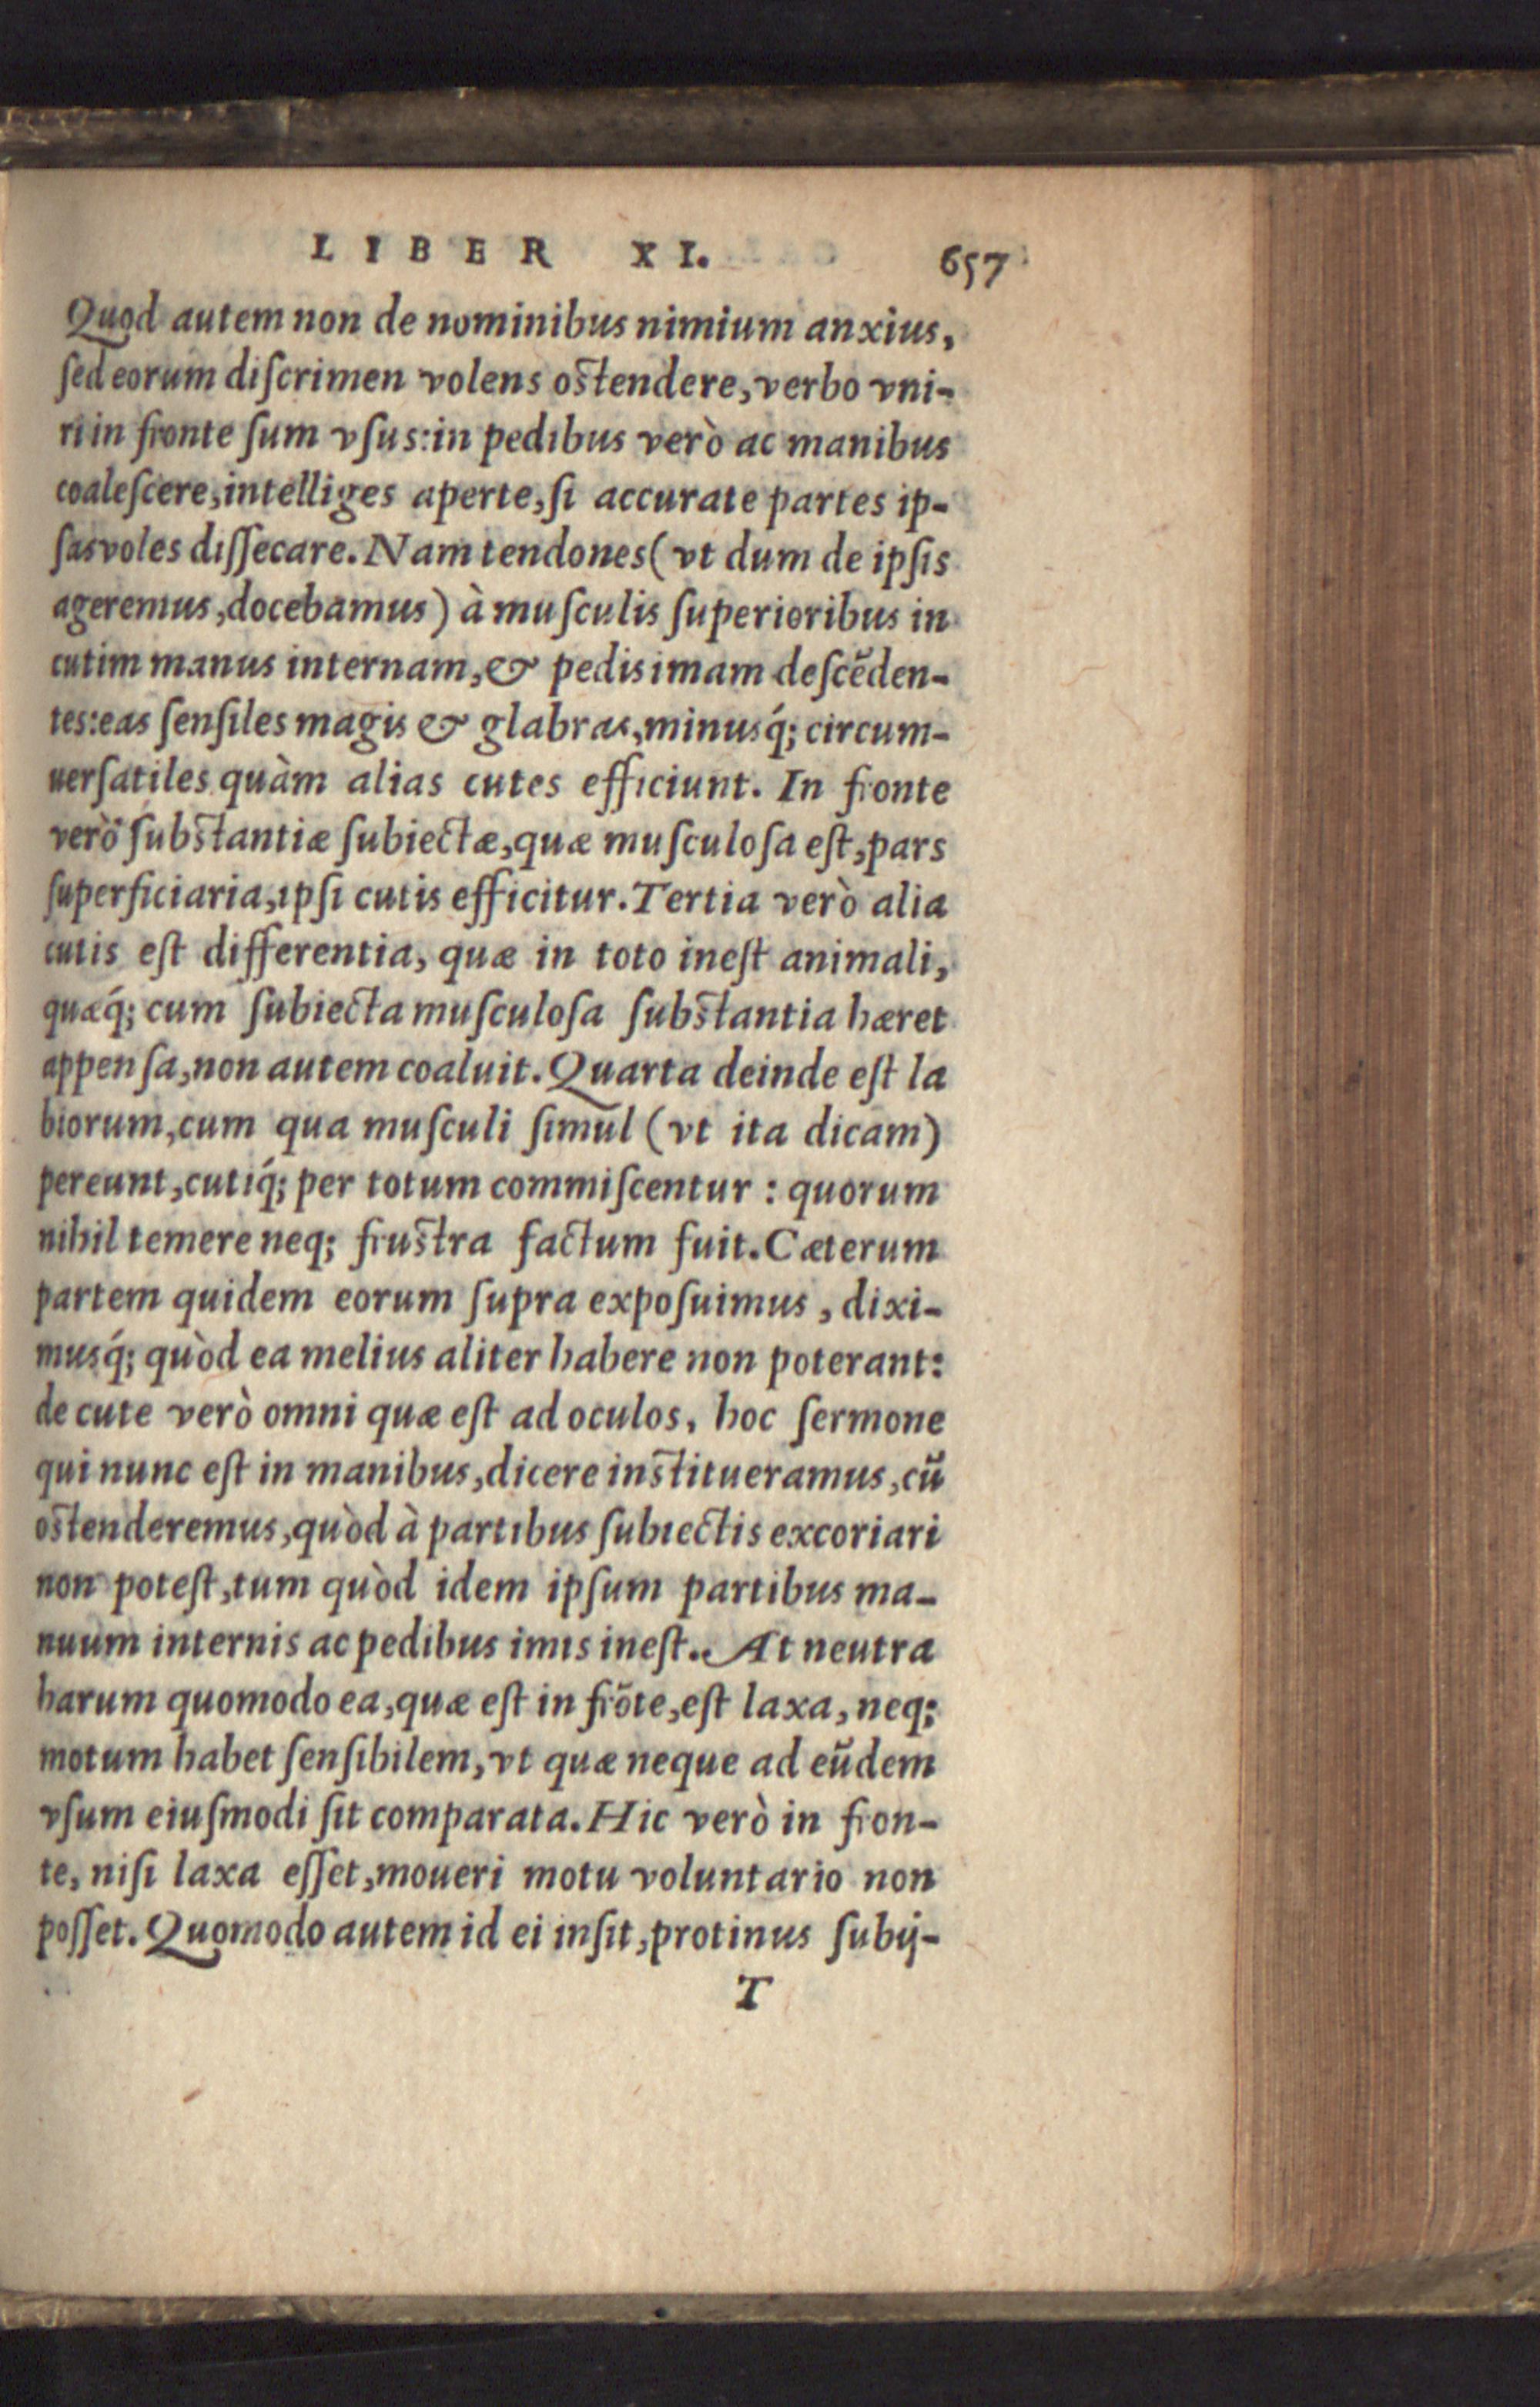 LIBER XI. 657
Quod autem non de nominibus nimium anxius,
ſed eorum diſcrimen volens oſtendere, verbo vni-
ri in fronte ſum vſus: in pedibus verò ac manibus
coaleſcere, intelliges aperte, ſi accurate partes ip-
ſas voles diſſecare. Nam tendones (vt dum de ipſis
ageremus, docebamus) à muſculis ſuperioribus in
cutim manus internam, & pedis imam deſcẽden-
tes: eas ſenſiles magis & glabras, minusq́; circum-
uerſatiles quàm alias cutes efficiunt. In fronte
verò ſubſtantiæ ſubiectæ, quæ muſculoſa eſt, pars
ſuperficiaria, ipſi cutis efficitur. Tertia verò alia
cutis eſt differentia, quæ in toto ineſt animali,
quæq́; cum ſubiecta muſculoſa ſubſtantia hæret
appenſa, non autem coaluit. Quarta deinde eſt la
biorum, cum qua muſculi ſimul (vt ita dicam)
pereunt, cutiq́; per totum commiſcentur: quorum
nihil temere neq; fruſtra factum fuit. Cæterum
partem quidem eorum ſupra expoſuimus, dixi-
musq́; quòd ea melius aliter habere non poterant:
de cute verò omni quæ eſt ad oculos, hoc ſermone
qui nunc eſt in manibus, dicere inſtitueramus, cũ
oſtenderemus, quòd à partibus ſubiectis excoriari
non poteſt, tum quòd idem ipſum partibus ma-
nuum internis ac pedibus imis ineſt. At neutra
harum quomodo ea, quæ eſt in frõte, eſt laxa, neq;
motum habet ſenſibilem, vt quæ neque ad eũdem
vſum eiuſmodi ſit comparata. Hic verò in fron-
te, niſi laxa eſſet, moueri motu voluntario non
poſſet. Quomodo autem id ei inſit, protinus ſubij-
T